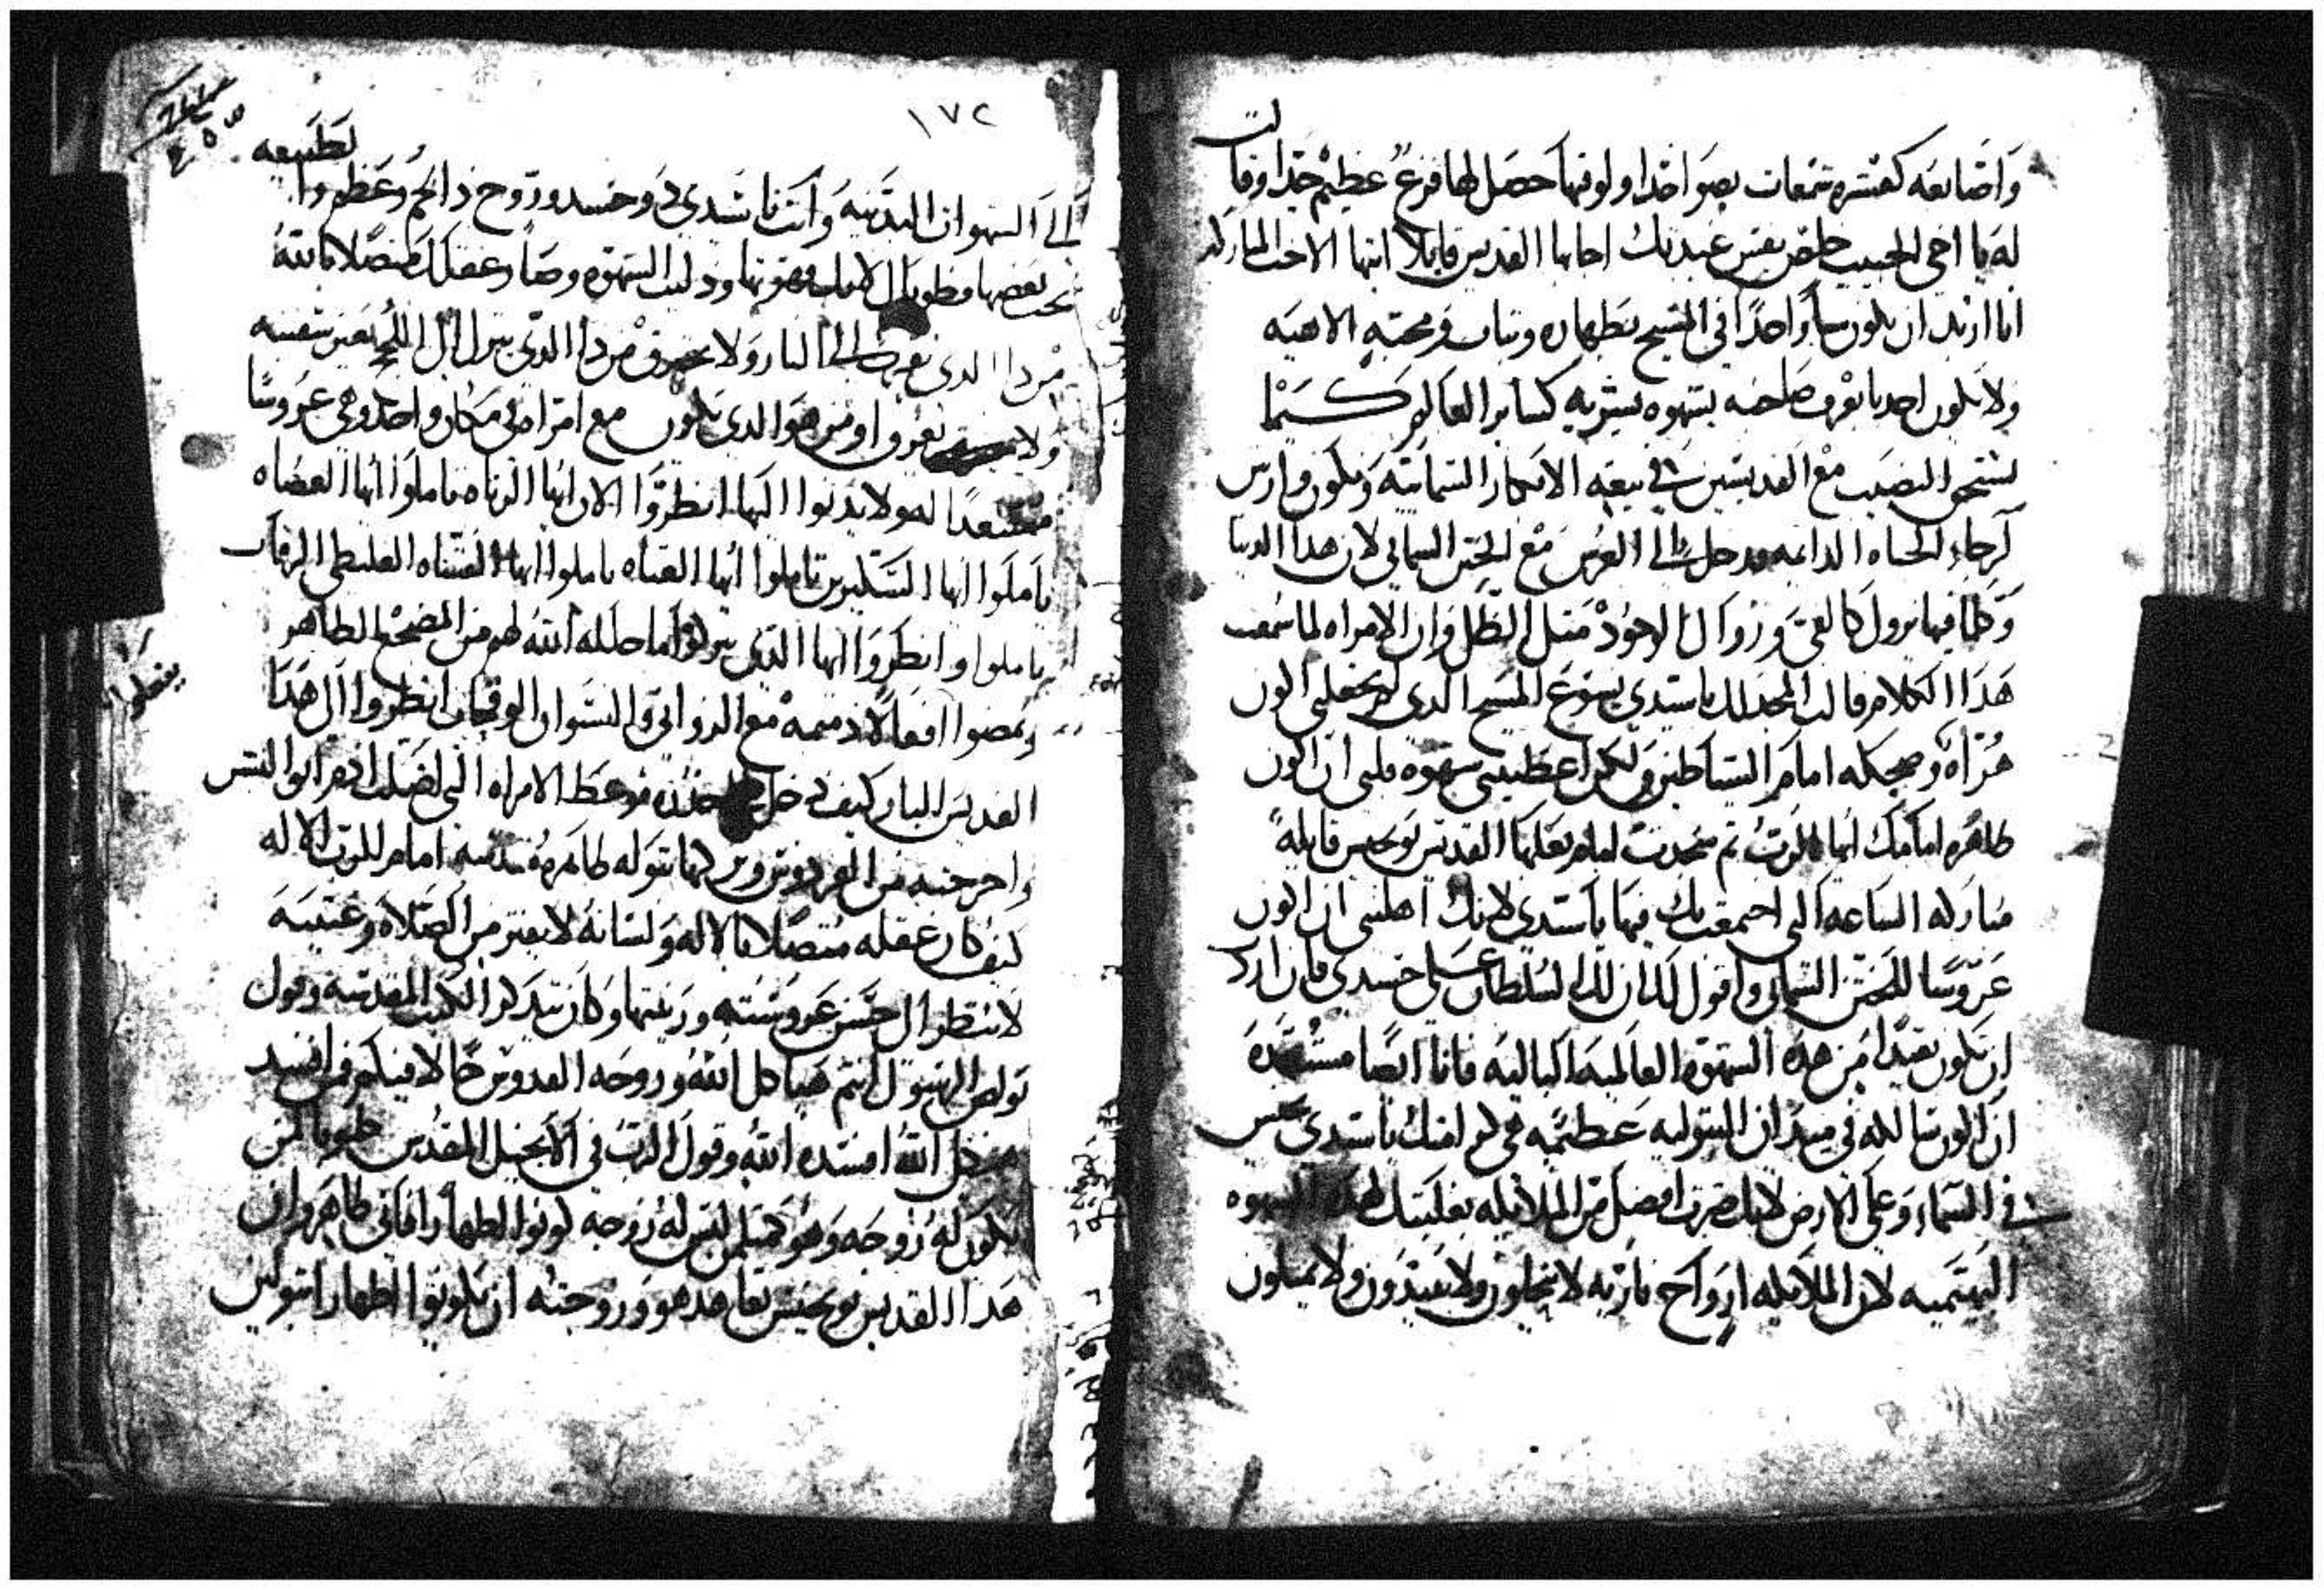 واضابعه كعشره شمعات بصوا خدا ولوقتها حصل لها فزع عظيم جدا وقالت
له يا اخي الحبيب خلص نفس عبدتك اجابها القديس قايلا ايتها الاخت المباركه
انا اريد ان نكون جسدا واحدا في المسيح بطهاره وثبات في محبته الالاهيه
ولا يكون احدنا يعرف صاحبه بشهوه بشريه كساير العالم كيما
نستحق النصيب مع القديسين في بيعه الابكار السمائيه ونكون وارثين
لرجاء الحياه الدايمه وندخل الى العرس مع الختن السمائي لان هذا الدنيا
وكلما فيها يزول كالفي وزوال الوجود مثل الظل وان الامراه لما سمعت
هذا الكلام قالت المجد لك ياسيدي يسوع المسيح الذي لم يجعلني اكون
هزاه وضحكه امام الشياطين ولكن اعطيتني شهوه قلبي ان اكون
طاهره امامك ايها الرب ثم سجدت امام بعلها القديس يوحنس قايله
مباركه الساعه التي اجتمعت بك فيها ياسيدي لانك اهلتني ان اكون
عروسا للختن السمائي واقول لك ان لك السلطان على جسدي فان اردت
ان تكون بعيدا من هذه الشهوه العالميه الباليه فانا ايضا مستعده
ان اكون بتول لله في ميدان البتوليه عظيمه هي كرامتك ياسيدي
في السماء وعلى الارض لانك صرت افضل من الملايكه بغلبتك لهذه الشهوه
البهيميه لان الملايكه ارواح ناريه لا ياكلون ولا يشربون ولا يميلون
١٧٢
لطبيعه
الى الشهوات البدنيه وانت ياسيدي ذو جسد وروح ذا لحم وعظم وا
تحت بعضها فطوباك لانك قهرتها وذللت الشهوه وصار عقلك متصلا بالله
من ذا الذي يقرب الى النار ولا يحترق من ذا الذي ينزل الى اللج بغير سفينه
ولا يغرق او من هو الذي يكون مع امراه في مكان واحد وهي عروسا
له ولا يدنوا اليها انظروا الان ايها الزناه تاملوا ايها العصاه
تاملوا ايها المتكبرين تاملوا ايها القساه تاملوا ايها العتاه الغليظي الرقاب
تاملوا وانظروا ايها الذي يتركوا ما حلله الله لهم من المضجع الطاهر
يفعلوا
ويمضوا افعالا ذميمه مع الزواني والنسوان الوقحات انظروا الى هذا
القديس البار كيف دخل من عظ الامراه التي اضلت ادم ابوا البشر
واخرجته من الفردوس وتركها بتوله طاهره مقدسه امام الرب الاله
كيف كان عقله متصلا بالاله ولسانه لا يفتر من الصلاه وعينيه
لا تنظر الى حسن عروسته وزينتها وكان يتذكر الكتب المقدسه وقول
بولص الرسول انتم هياكل الله وروحه القدوس حالا فيكم فمن افسد
هيكل الله افسده الله وقول الرب في الانجيل المقدس طوبا لمن
يكون له زوجه وهو كمثل من ليس له زوجه كونوا اطهارا فاني طاهر وان
هذا القديس يوحنس تعاهد هو وزوجته ان يكونوا اطهارا بتولين